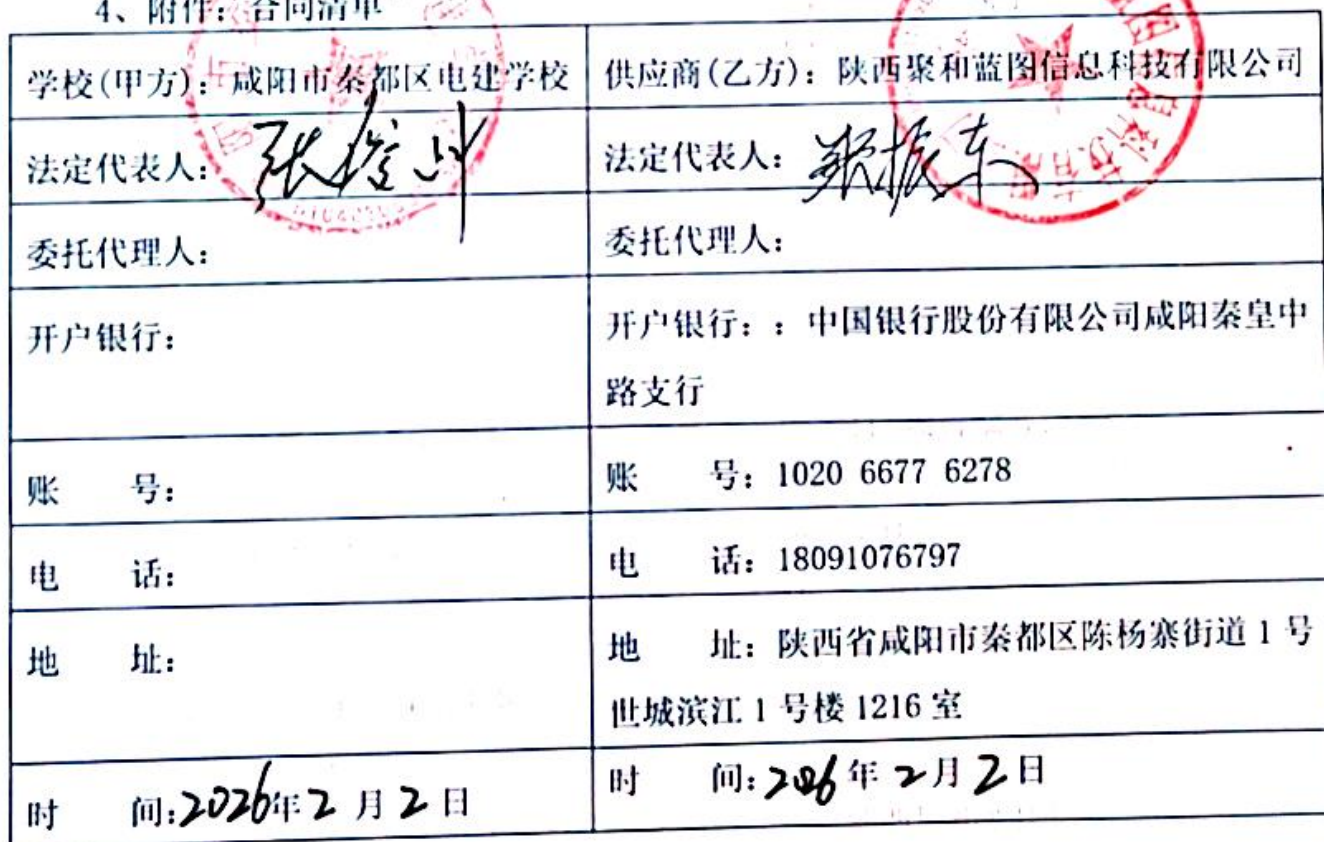 4、附件：合同清单
学校(甲方)：咸阳市秦都区电建学校
供应商(乙方)：陕西聚和蓝图信息科技有限公司
法定代表人：
法定代表人：郑振东
委托代理人：
委托代理人：
开户银行：
开户银行：：中国银行股份有限公司咸阳秦皇中
路支行
账 号：
账 号：1020 6677 6278
电 话：
电 话：18091076797
地 址：
地 址：陕西省咸阳市秦都区陈杨寨街道1号
世城滨江1号楼1216室
时 间:2026年2月2日
时 间:2026年2月2日